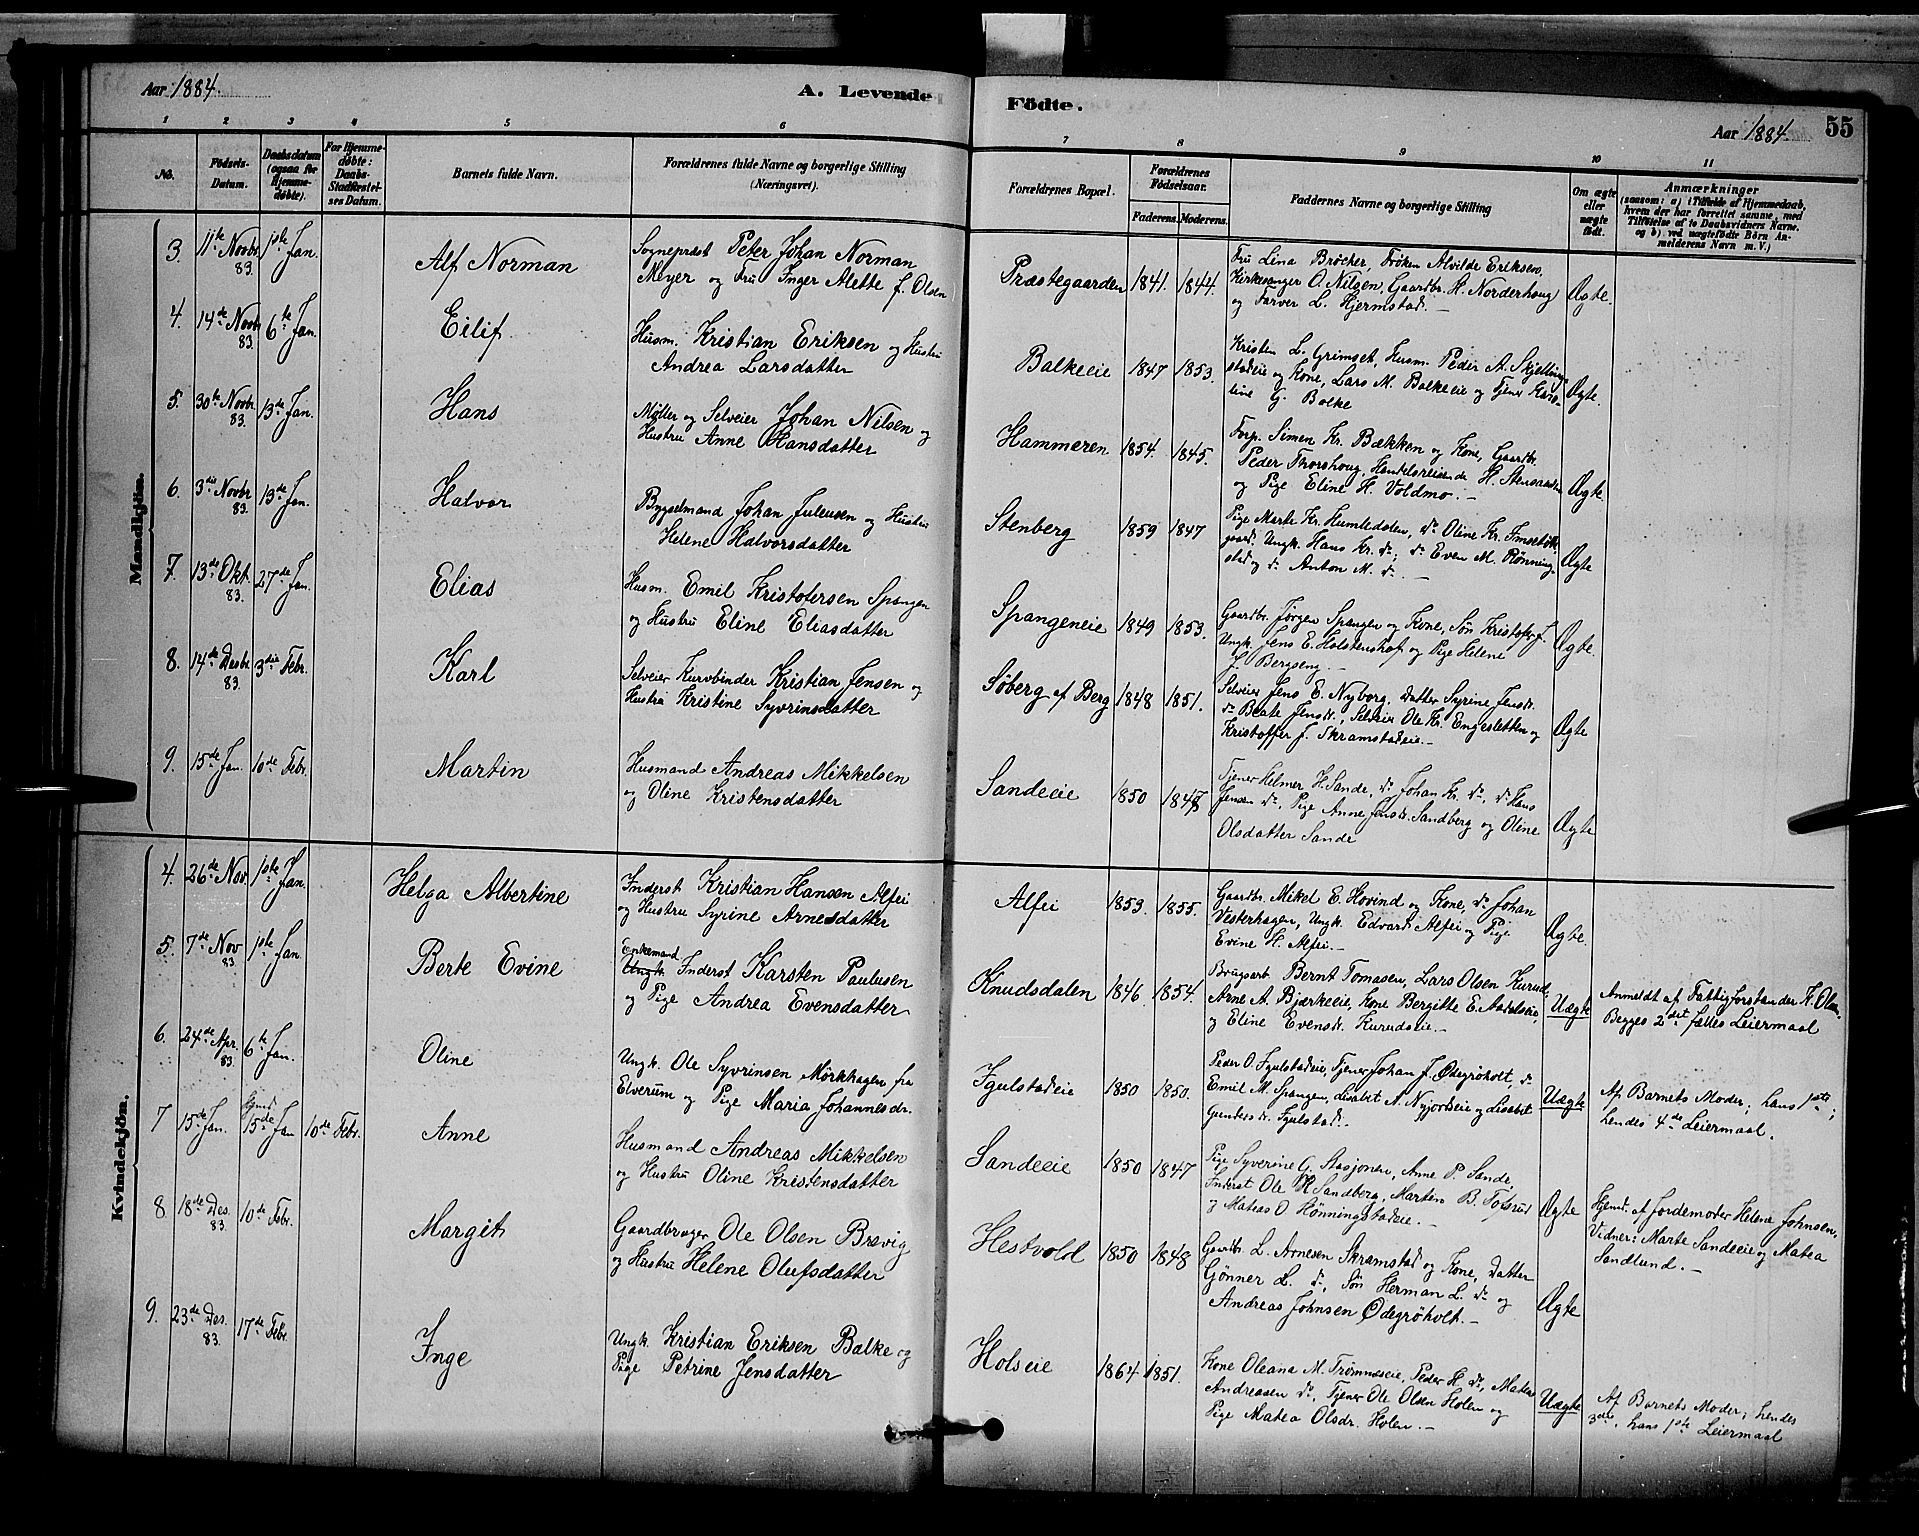 Aar 1884.
A. Levende
1 2 3 4 5 6
No.
Fødsels-
Datum.
Daabsdatum
(ogsaa for
Hjemme-
døbte).
For Hjemme-
døbte:
Daabs-
Stadfæstel-
ses Datum.
Barnets fulde Navn.
Forældrenes fulde Navne og borgerlige Stilling
(Næringsvei).
Mandkjøn.
3. 11te Novbr 83. 1ste Jan. Alf Norman
Sognepræst Peter Johan Norman
Meyer og Fru Inger Alette f. Olsen
4. 14de Novbr 83. 6te Jan. Eilif
Husm. Kristian Eriksen og Hustru
Andrea Larsdatter
5. 30te Novbr 83. 13de Jan. Hans
Møller og Selveier Johan Nilsen og
Hustru Anne Hansdatter
6. 3die Novbr 83. 13de Jan. Halvor
Bygselmand Johan Juleusen og Hustru
Helene Halvorsdatter
7. 13de Okt. 83. 27de Jan. Elias
Husm. Emil Kristofersen Spangen
og Hustru Eline Eliasdatter
8. 14de Desbr 83. 3die Febr. Karl
Selveier Kurvbinder Kristian Jensen og
Hustru Kristine Syvrinsdatter
9. 15de Jan. 10de Febr. Martin
Husmand Andreas Mikkelsen
og Oline Kristensdatter
Kvindekjön.
4. 26de Nov. 1ste Jan. Helga Albertine
Inderst Kristian Hansen Alfei
og Hustru Syrine Arnesdatter
5. 7de Nov 83. 1ste Jan. Berte Evine
Enkemand
Ungk. Inderst Karsten Paulusen
og Pige Andrea Evensdatter
6. 24de Apr. 83. 6te Jan. Oline
Ungk. Ole Syvrinsen Mørkhagen fra
Elverum og Pige Maria Johannesdr.
7 15de Jan. Hjmd. 15de Jan 10de Febr. Anne
Husmand Andreas Mikkelsen
og Hustru Oline Kristensdatter
8. 18de Des. 83. 10de Febr. Margit
Gaardbruger Ole Olsen Brævig
og Hustru Helene Olufsdatter
9. 23de Des. 83. 17de Febr. Inge
Ungk. Kristian Eriksen Balke og
Pige Petrine Jensdatter
Födte.
Aar 1884. 55
7 8 9 10 11
Forældrenes Bopæl.
Forældrenes
Fødselsaar.
Faderens. Moderens.
Faddernes Navne og borgerlige Stilling
Om ægte
eller
uægte
født.
Anmærkninger
(saasom: a) i Tilfælde af Hjemmedaab,
hvem der har forrettet samme, med
Tilføielse af to Daabsvidners Navne,
og b) ved uægtefødte Börn An-
melderens Navn m. V.)
Præstegaarden 1841. 1844.
Fru Lina Bröcher, Fröken Alvilde Eriksen,
Kirkesanger O. Nilsen, Gaardbr. H. Norderhoug
og Farver L. Hjermstad.— Ægte.
Balkeeie 1847 1853.
Kristen L. Grimset, Husm. Peder A. Skjelling-
stadeie og Kone, Lars M. Balkeeie og Tjener Karo-
line G. Balke Ægte.
Hammeren 1854. 1845.
Forp. Simen Kr. Bækken og Kone, Gaardbr.
Peder Thorshoug, Handelsreisende H. Stensaasen
og Pige Eline H. Voldmo.— Ægte
Stenberg 1859 1847
Pige Marte Kr. Humledalen, do Oline Kr.
gaard. Ungk. Hans Kr. do; do Even M. Rønning-
stad og do Anton M. do.— Ægte
Spangeneie 1849 1853.
Gaardbr. Jørgen Spangen og Kone, Søn Kristofer J.
Ungk. Jens E. Holstenshof og Pige Helene
J. Bergseng.— Ægte.
Søberg af Berg 1848 1851.
Selveier Jens E. Nyborg, Datter Syrine Jensdr.
do Beate Jensdr., Selveier Ole Kr. Engesletten og
Kristoffer J. Skramstadeie.— Ægte
Sandeeie 1850 1847
Tjener Helmer H. Sande, do Johan Kr. do, do Hans
Jensen do, Pige Anne Jensdr. Sandberg og Oline
Olsdatter Sande Ægte
Alfei 1853. 1855.
Gaardbr. Mikel E. Hovind og Kone, do Johan
Vesterhagen, Ungk. Edvard Alfei og Pige
Evine H. Alfei.— Ægte.
Knudsdalen 1846. 1854.
Brugsarb. Bernt Tomasen, Lars Olsen Kurud,
Arne A. Bjærkeeie, Kone Bergitte E. Aadalseie,
og Eline Evensdr. Kurudseie.— Uægte
Anmeldt af Fattigforstander K. Olsen.
Begges 2det fælles Leiermaal
Igulstadeie 1850 1850.
Peder O. Igulstadeie, Tjener Johan J. Ødegrøholt, do
Emil M. Spangen, Lisabet A. Nyjordseie og Lisabet
Gundersdr. Igulstad.— Uægte
Af Barnets Moder; hans 1ste;
hendes 4de Leiermaal.
Sandeeie 1850 1847
Pige Syverine G. Stasjonen, Anne P. Sande,
Inderst Ole H Sandberg, Marten B. Tofsrud
og Mateas O. Hønningstadeie.— Ægte
Hjemd. af Jordemoder Helene Johnsen,
Vidner: Marte Sandeeie og Matea
Sandlund.—
Hestvold 1850 1848
Gaardbr. L. Arnesen Skramstad og Kone, Datter
Gönner L. do, Søn Herman L. do og
Andreas Johnsen Ødegrøholt.— Ægte
Holseie 1864 1851.
Kone Oleana M. Trømnæseie, Peder H. do, Mateas
Andreasen do, Tjener Ole Olsen Holen og
Pige Matea Olsdr. Holen.— Uægte
Af Barnets Moder; hendes
3die, hans 1ste Leiermaal